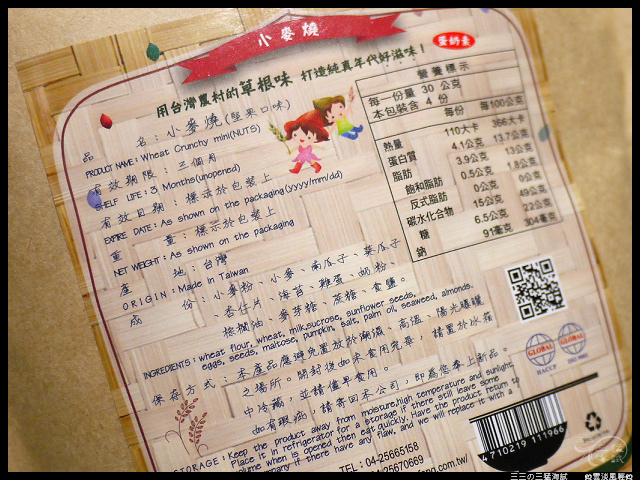 小麥燒
蛋奶素
用台灣農村的草根味 打造純真年代好滋味！
品 名：小麥燒(堅果口味)
PRODUCT NAME：Wheat Crunchy mini(NUTS)
有效期限：三個月
SHELF LIFE：3 Months(unopened)
有效日期：標示於包裝上
EXPIRE DATE：As shown on the packaging(yyyy/mm/dd)
重 量：標示於包裝上
NET WEIGHT：As shown on the packaging
產 地：台灣
ORIGIN：Made in Taiwan
成 份：小麥粉、小麥、南瓜子、葵瓜子
、杏仁片、海苔、雞蛋、奶粉、
棕櫚油、麥芽糖、蔗糖、食鹽。
INGREDIENTS：wheat flour, wheat, milk,sucrose, sunflower seeds,
eggs, seeds, maltose, pumpkin, salt, palm oil, seaweed, almonds.
保存方式：本產品應避免置放於潮濕、高溫、陽光曝曬
之場所。開封後如未食用完畢，請置於冰箱
中冷藏，並請儘早食用。
如有瑕疵，請寄回本公司，即為您奉上新品。
STORAGE：Keep the product away from moisture,high temperature and sunlight.
Place it in refrigerator for a storage if there still leave some
volume when is opened then eat quickly. Have the product return to
if there have any flaw, and we will replace it with a
TEL：04-25665158
04-25670669
營養標示
每一份量 30 公克
本包裝含 4 份
每份 每100公克
熱量 110大卡 366大卡
蛋白質 4.1公克 13.7公克
脂肪 3.9公克 13公克
飽和脂肪 0.5公克 1.8公克
反式脂肪 0公克 0公克
碳水化合物 15公克 49公克
糖 6.5公克 22公克
鈉 91毫克 304毫克
GLOBAL
HACCP
GLOBAL
4710219 111966
三三の三猛海賊
雲淡風輕